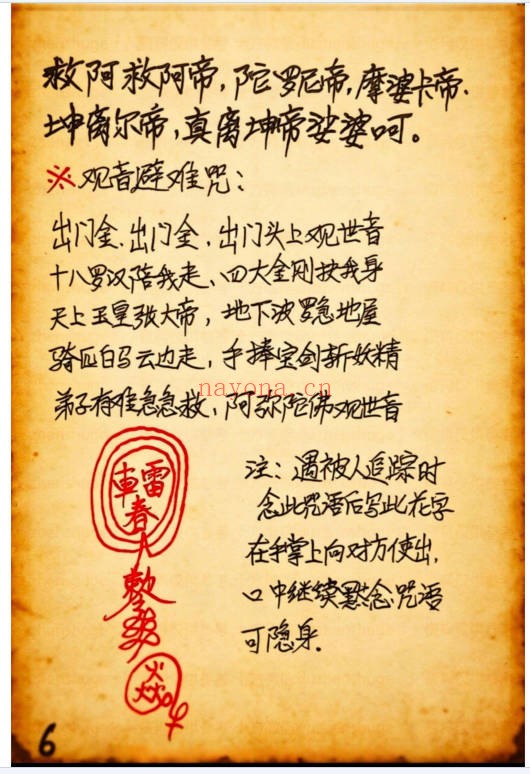 救阿救阿帝，陀罗尼帝，摩婆卡帝.
坤离尔帝，真离坤帝娑婆呵。
※观音避难咒：
出门金.出门金，出门头上观世音
十八罗汉陪我走、四大金刚扶我身
天上玉皇张大帝，地下波罗急地屋
骑匹白马云边走，手捧宝剑斩妖精
nayona.cn
弟子有难急急救、阿弥陀佛观世音
車雷
春
敕
焱
注：遇被人追踪时
念此咒语后写此花字
在手掌上向对方使出，
口中继续默念咒语
可隐身.
6